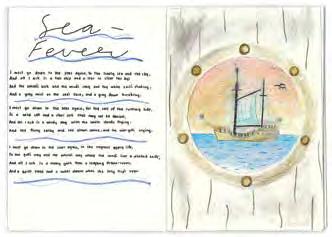 Sea-
Fever
I must go down to the seas again, to the lonely sea and the sky,
And all I ask is a tall ship and a star to steer her by,
And the wheel's kick and the wind's song and the white sail's shaking,
And a grey mist on the sea's face, and a grey dawn breaking.
I must go down to the seas again, for the call of the running tide,
Is a wild call and a clear call that may not be denied;
And all I ask is a windy day with the white clouds flying,
And the flung spray and the blown spume, and the sea-gulls crying.
I must go down to the seas again, to the vagrant gypsy life,
To the gull's way and the whale's way where the wind's like a whetted knife;
And all I ask is a merry yarn from a laughing fellow-rover,
And a quiet sleep and a sweet dream when the long trick's over.